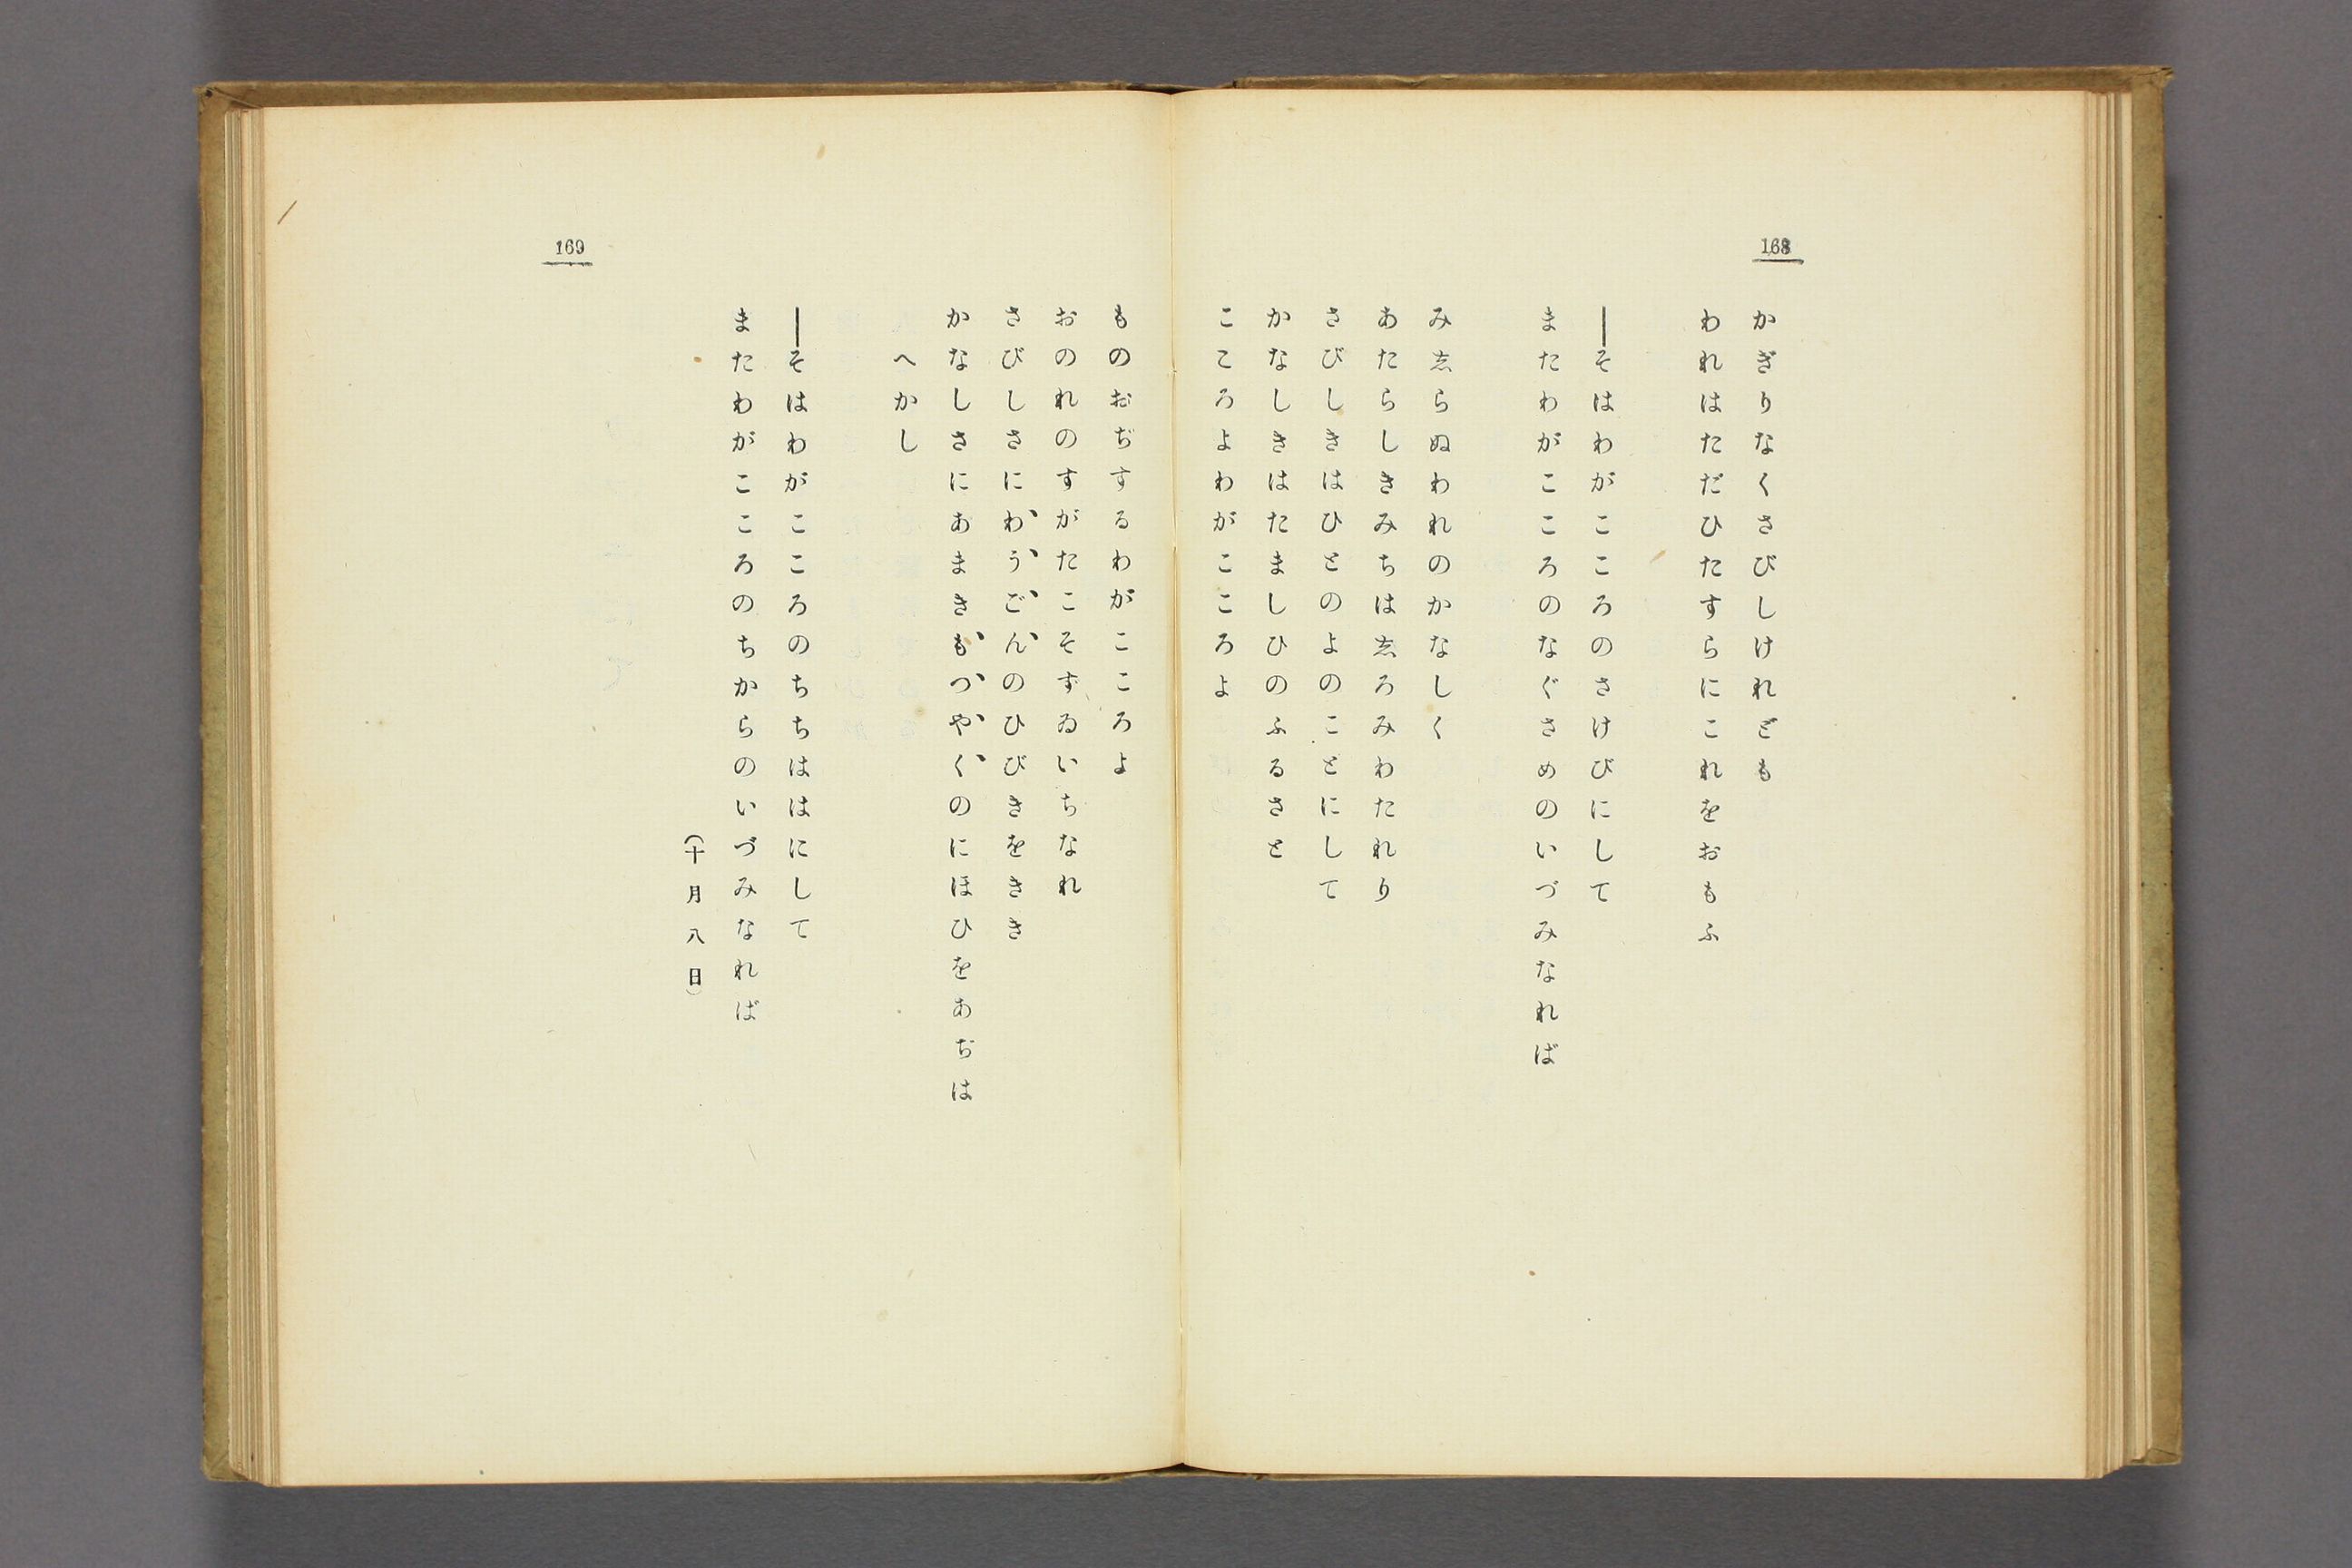 168
かぎりなくさびしけれども
われはただひたすらにこれをおもふ
―そはわがこころのさけびにして
またわがこころのなぐさめのいづみなれば
みゑらぬわれのかなしく
あたらしきみちはゑろみわたれり
さびしきはひとのよのことにして
かなしきはたましひのふるさと
こころよわがこころよ
169
ものおぢするわがこころよ
おのれのすがたこそずゐいちなれ
さびしさにわうごんのひびきをきき
かなしさにあまきもつやくのにほひをあぢは
へかし
―そはわがこころのちちははにして
またわがこころのちからのいづみなれば
(十月八日)